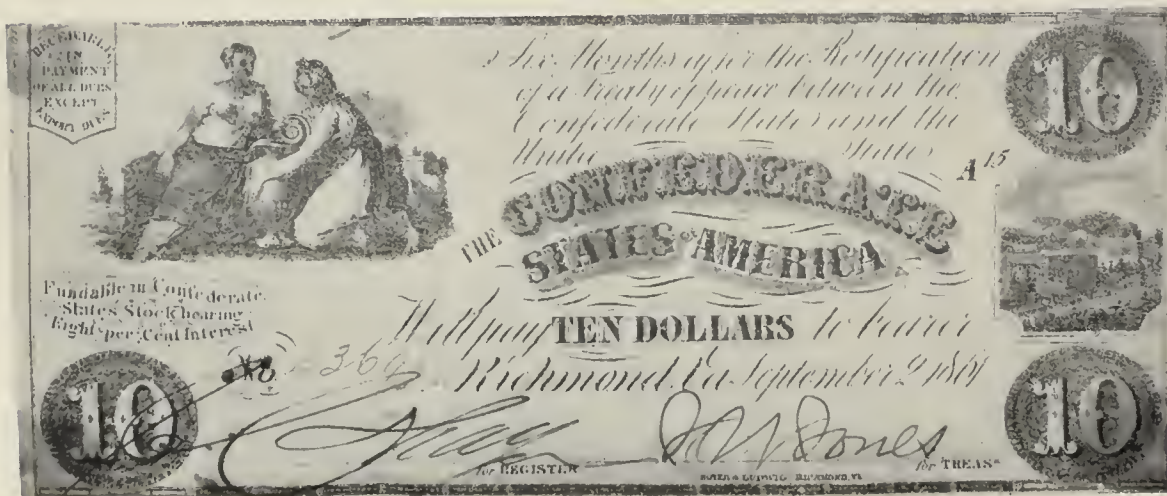 RECEIVABLE
IN
PAYMENT
OF ALL DUES
EXCEPT
EXPORT DUES
Six Months after the Ratification
of a treaty of peace between the
Confederate States and the
United States
10
A 15
THE CONFEDERATE
STATES OF AMERICA
Fundable in Confederate
States Stock bearing
Eight per Cent Interest
Will pay TEN DOLLARS to bearer
No 360
Richmond, Va September 2 1861
10
10
for REGISTER
J W Jones
for TREASR
HOYER & LUDWIG, RICHMOND, VA